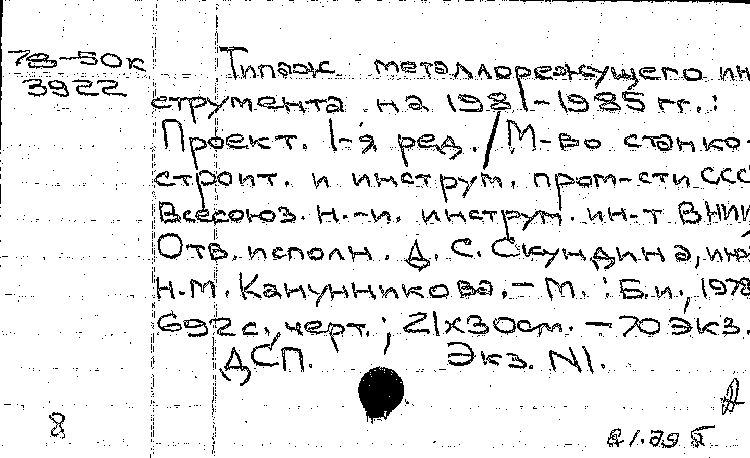 78-50к Типаж металлорежущего ин
3922 струмента на 1981-1985 гг.:
Проект. 1-я ред. / М-во станко-
строит. и инструм. пром-сти ССС
Всесоюз. н.-и. инструм. ин-т ВНИИ
Отв. исполн. Д. С. Скундина, инж
Н.М. Канунникова. - М. : Б.и., 1978
692 с., черт. ; 21х30см. - 70 экз.
ДСП. Экз. N1.
8